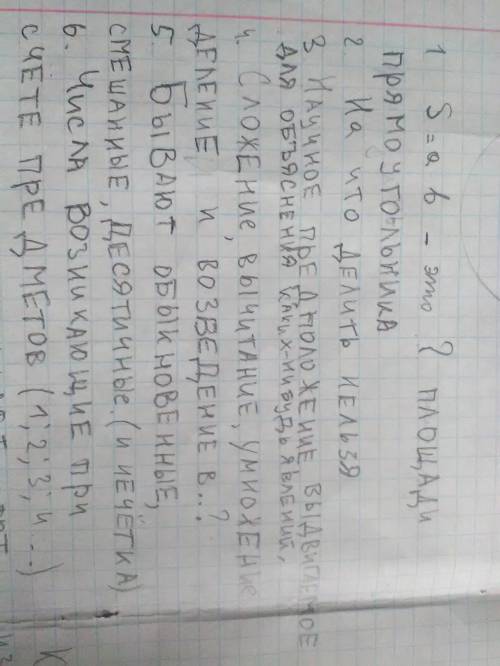 1 S=ab - это ? площади
прямоугольника
2. На что делить нельзя
3 Научное предположение выдвигаемое
для объяснения каких-нибудь явлений.
4. Сложение, вычитание, умножение
деление и возведение в...?
5. Бывают обыкновенные,
смешанные, десятичные. (и нечётка)
6. Числа возникающие при
счёте предметов (1,2,3, и ...)